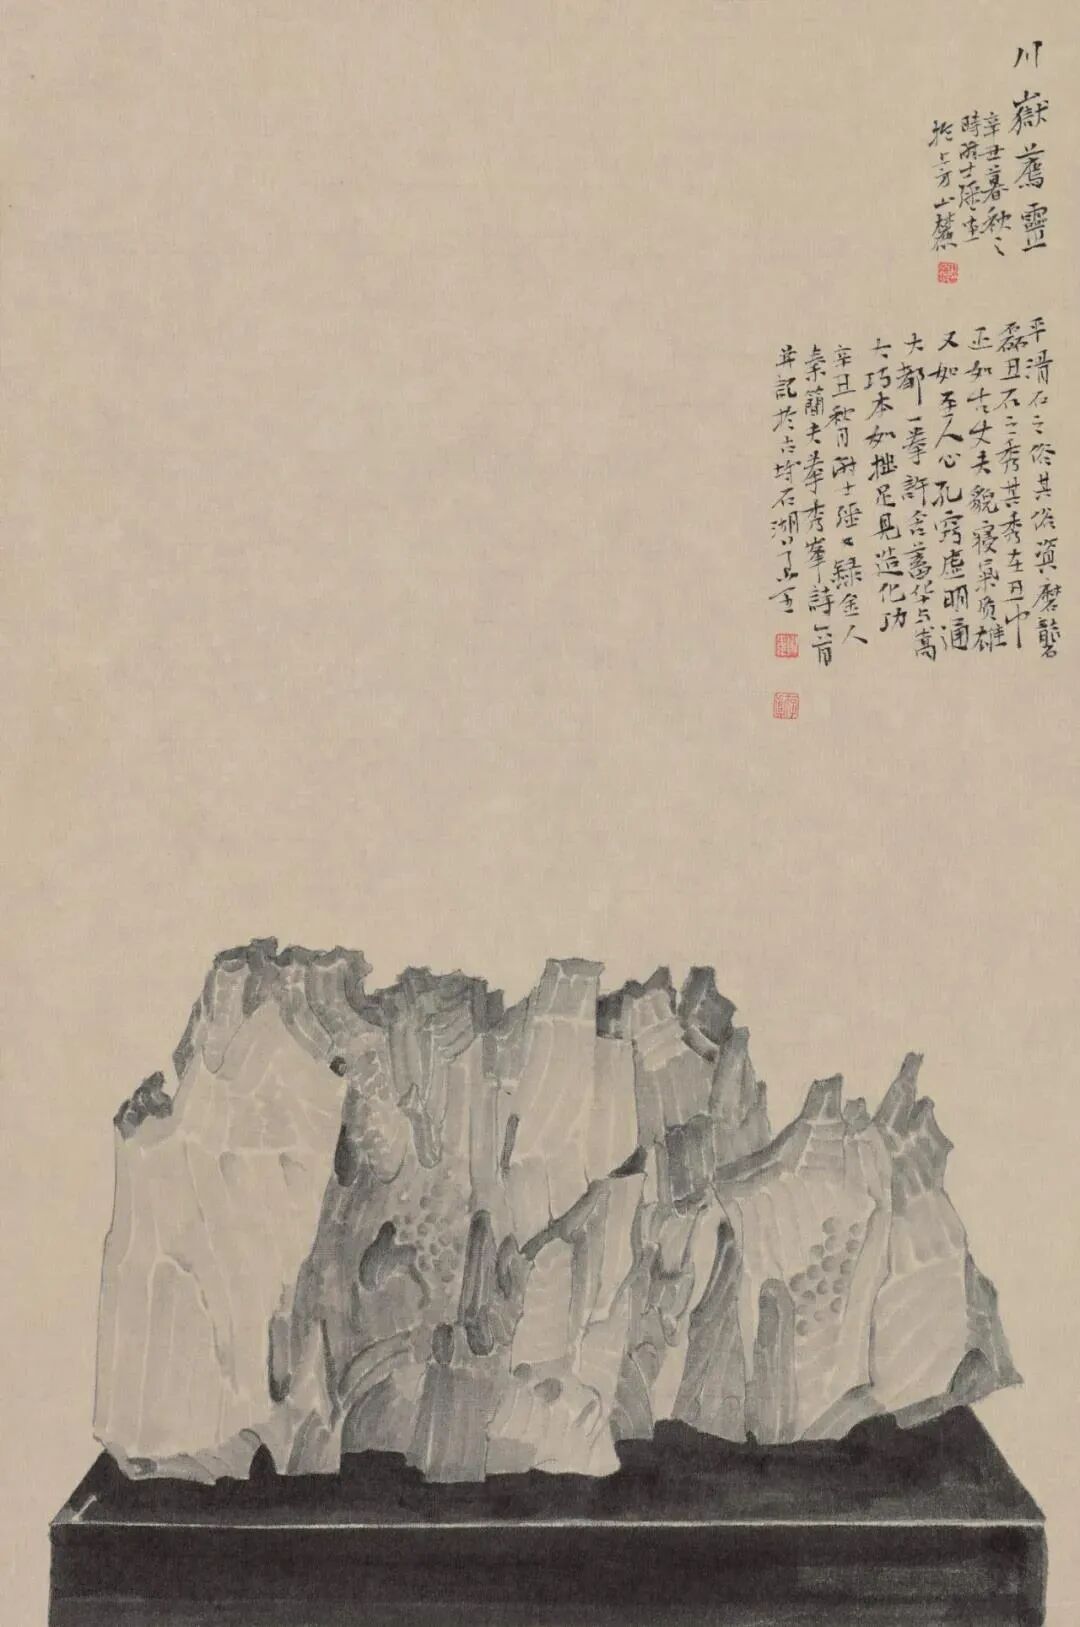 川嶽薦靈
辛丑暮秋之
時士
於上方山麓
平滑石之俗其俗資磨礱
磊丑石之秀其秀在丑中
正如古丈夫貌寢氣質雄
又如至人心孔竅虛明通
大都一拳許含蓄华与嵩
大巧本如拙足見造化功
辛丑秋月士錄金人
秦簡夫拳秀峯詩一首
并記於石湖